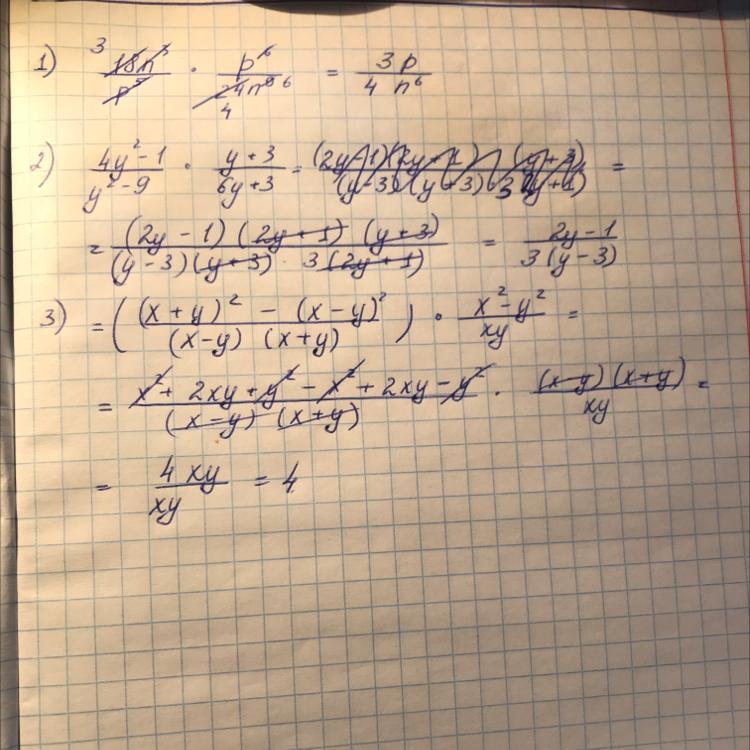 1) 3 18n³/p⁵ · p⁶/24n⁹ 6 4 = 3p/4n⁶
2) 4y²-1/y²-9 · y+3/6y+3 = (2y-1)(2y+1)(y+3)/(y-3)(y+3)·3(2y+1) =
= (2y-1)(2y+1)(y+3)/(y-3)(y+3)·3(2y+1) = 2y-1/3(y-3)
3) = ((x+y)²-(x-y)²/(x-y)(x+y)) · x²-y²/xy =
= x²+2xy+y²-x²+2xy-y²/(x-y)(x+y) · (x-y)(x+y)/xy =
= 4xy/xy = 4